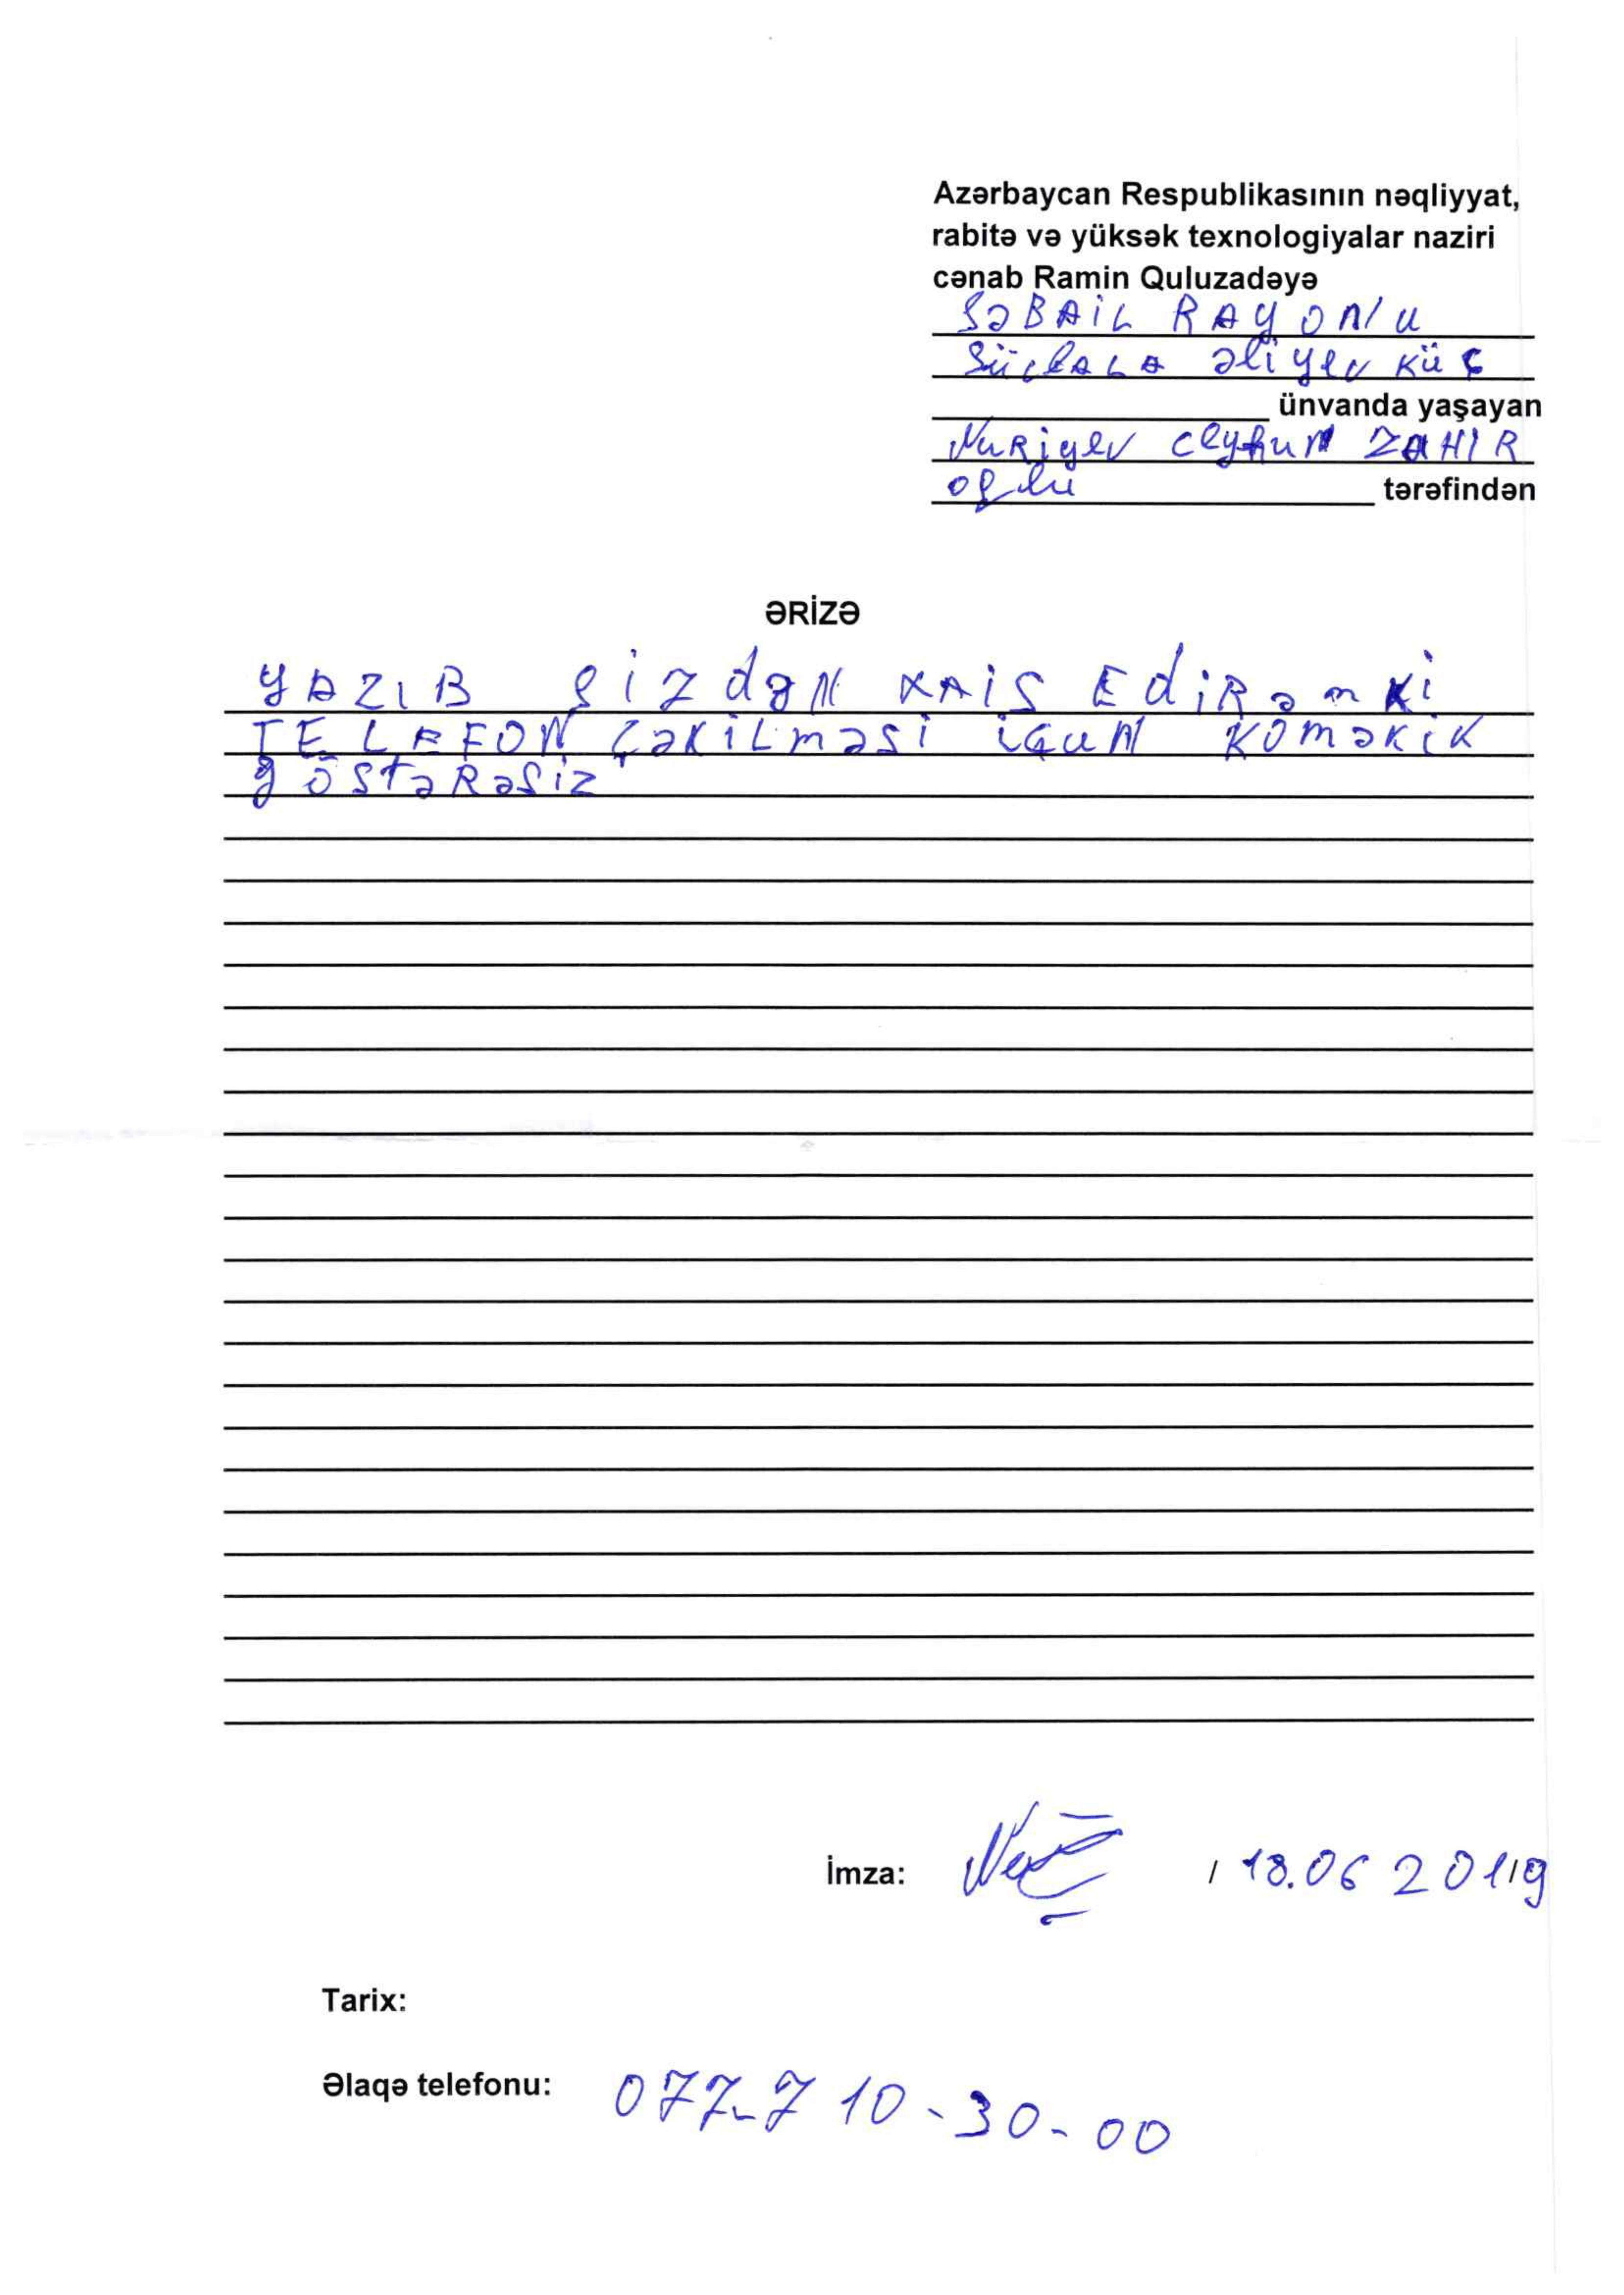 Azərbaycan Respublikasının nəqliyyat,
rabitə və yüksək texnologiyalar naziri
cənab Ramin Quluzadəyə
SəBAiL RAYONU
əliyev Küç
ünvanda yaşayan
NuRiyev Ceyhun ZAHIR
oğlu tərəfindən
ƏRİZƏ
YAZIB SizdəN XAiS EdiRəm Ki
TELEFON ÇəKiLməsi içuN Köməkik
göstəRəsiz
İmza: / 18.06 2019
Tarix:
Əlaqə telefonu: 077-7 10-30-00